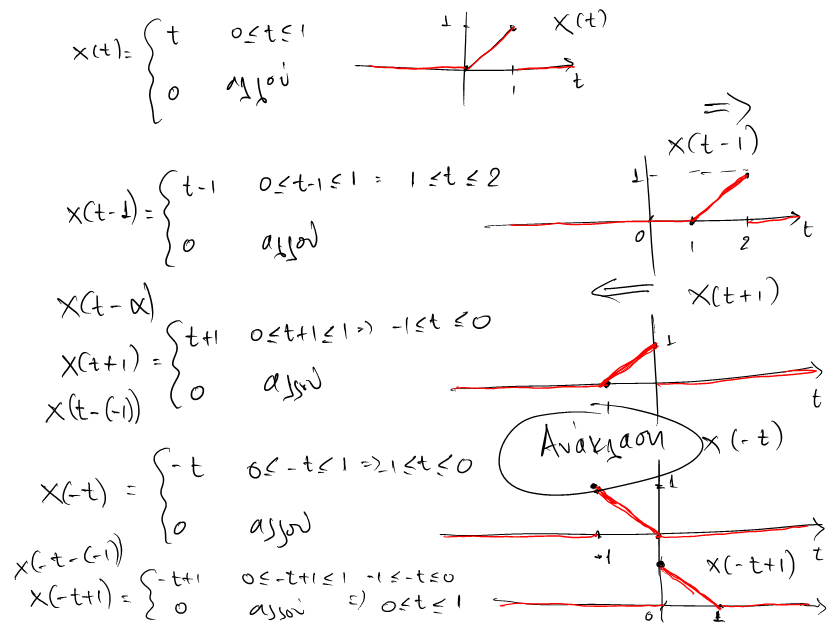 x(t) = { t 0≤t≤1
0 αλλού
1 x(t)
1 t
⇒
x(t-1)
x(t-1) = { t-1 0≤t-1≤1 = 1≤t≤2
0 αλλού
1
0 1 2 t
x(t-α)
⇐ x(t+1)
x(t+1) = { t+1 0≤t+1≤1 => -1≤t≤0
0 αλλού
x(t-(-1))
1
-1 t
Ανάκλαση x(-t)
x(-t) = { -t 0≤-t≤1 => -1≤t≤0
0 αλλού
1
-1 t
x(-t-(-1))
x(-t+1) = { -t+1 0≤-t+1≤1 -1≤-t≤0
0 αλλού => 0≤t≤1
x(-t+1)
0 1